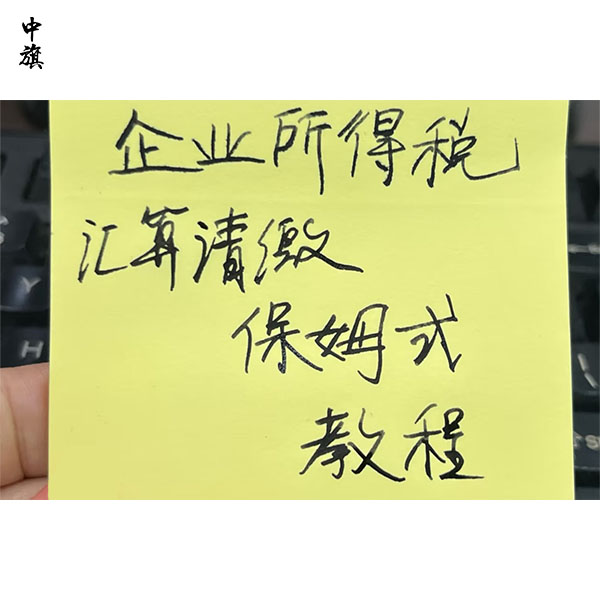 中旗
企业所得税
汇算清缴
保姆式
教程
Y
H